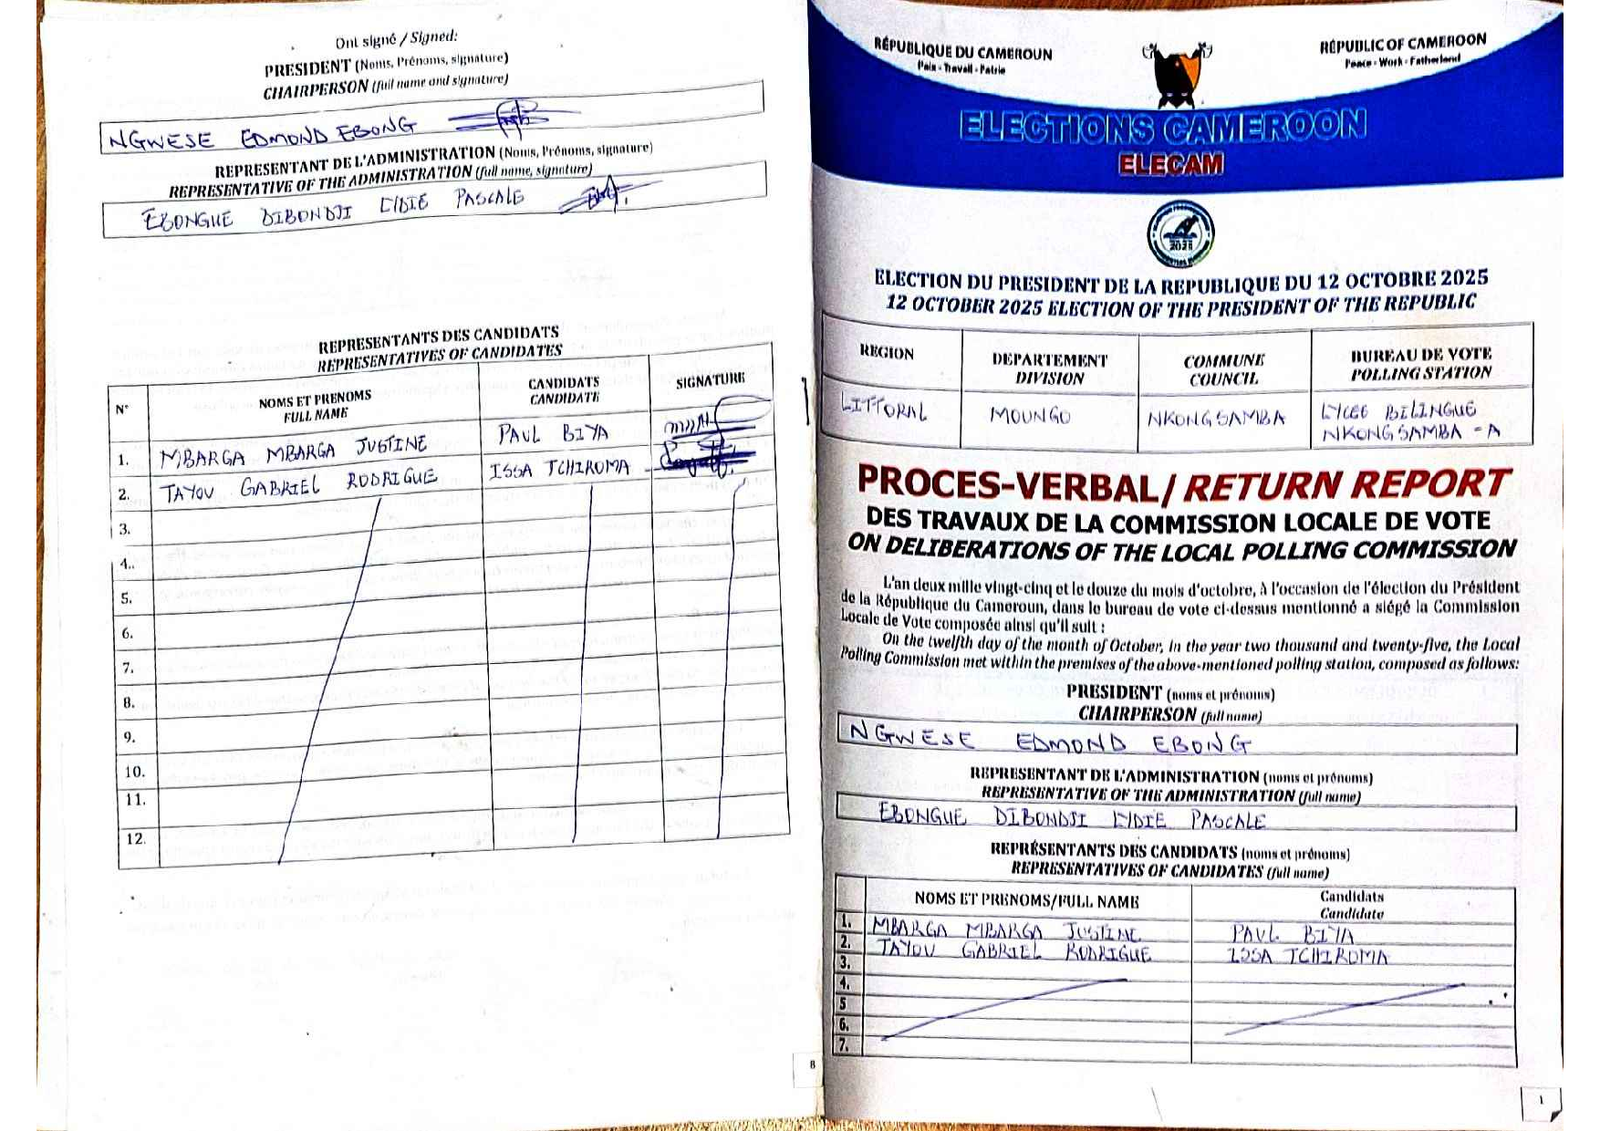 Ont signé / Signed:
PRESIDENT (Noms, Prénoms, signature)
CHAIRPERSON (full name and signature)
NGWESE EDMOND EBONG
REPRESENTANT DE L'ADMINISTRATION (Noms, Prénoms, signature)
REPRESENTATIVE OF THE ADMINISTRATION (full name, signature)
EBONGUE DIBONDJI LYDIE PASCALE
REPRESENTANTS DES CANDIDATS
REPRESENTATIVES OF CANDIDATES
N° NOMS ET PRENOMS FULL NAME CANDIDATS CANDIDATE SIGNATURE
1. MBARGA MBARGA JUSTINE PAUL BIYA
2. TAYOU GABRIEL RODRIGUE ISSA TCHIROMA
3.
4..
5.
6.
7.
8.
9.
10.
11.
12.
8
RÉPUBLIQUE DU CAMEROUN
Paix - Travail - Patrie
RÉPUBLIC OF CAMEROON
Peace - Work - Fatherland
ELECTIONS CAMEROON
ELECAM
2025
ELECTION DU PRESIDENT DE LA REPUBLIQUE DU 12 OCTOBRE 2025
12 OCTOBER 2025 ELECTION OF THE PRESIDENT OF THE REPUBLIC
REGION DEPARTEMENT DIVISION COMMUNE COUNCIL BUREAU DE VOTE POLLING STATION
LITTORAL MOUNGO NKONGSAMBA LYCEE BILINGUE
NKONGSAMBA - A
PROCES-VERBAL/ RETURN REPORT
DES TRAVAUX DE LA COMMISSION LOCALE DE VOTE
ON DELIBERATIONS OF THE LOCAL POLLING COMMISSION
L'an deux mille vingt-cinq et le douze du mois d'octobre, à l'occasion de l'élection du Président
de la République du Cameroun, dans le bureau de vote ci-dessus mentionné a siégé la Commission
Locale de Vote composée ainsi qu'il suit :
On the twelfth day of the month of October, in the year two thousand and twenty-five, the Local
Polling Commission met within the premises of the above-mentioned polling station, composed as follows:
PRESIDENT (noms et prénoms)
CHAIRPERSON (full name)
NGWESE EDMOND EBONG
REPRESENTANT DE L'ADMINISTRATION (noms et prénoms)
REPRESENTATIVE OF THE ADMINISTRATION (full name)
EBONGUE DIBONDJI LYDIE PASCALE
REPRÉSENTANTS DES CANDIDATS (noms et prénoms)
REPRESENTATIVES OF CANDIDATES (full name)
NOMS ET PRENOMS/FULL NAME Candidats Candidate
1. MBARGA MBARGA JUSTINE PAUL BIYA
2. TAYOU GABRIEL RODRIGUE ISSA TCHIROMA
3.
4.
5
6.
7.
1